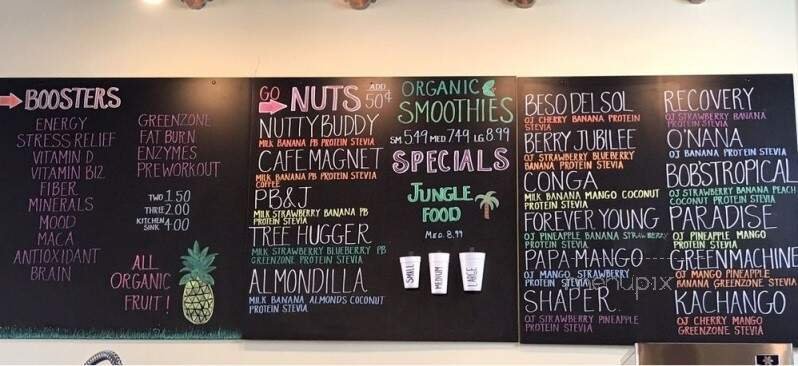 BOOSTERS
ENERGY
STRESS RELIEF
VITAMIN D
VITAMIN B12
FIBER
MINERALS
MOOD
MACA
ANTIOXIDANT
BRAIN
GREENZONE
FAT BURN
ENZYMES
PREWORKOUT
TWO 1.50
THREE 2.00
KITCHEN SINK 4.00
ALL
ORGANIC
FRUIT!
GO NUTS ADD 50¢
NUTTY BUDDY
MILK BANANA PB PROTEIN STEVIA
CAFE MAGNET
MILK BANANA PB PROTEIN STEVIA
COFFEE
PB&J
MILK STRAWBERRY BANANA PB
PROTEIN STEVIA
TREE HUGGER
MILK STRAWBERRY BLUEBERRY PB
GREENZONE PROTEIN STEVIA
ALMONDILLA
MILK BANANA ALMONDS COCONUT
PROTEIN STEVIA
ORGANIC
SMOOTHIES
SM 5.49 MED 7.49 LG 8.99
SPECIALS
JUNGLE
FOOD
MED. 8.99
SMALL
MEDIUM
LARGE
BESO DEL SOL
OJ CHERRY BANANA PROTEIN
STEVIA
BERRY JUBILEE
OJ STRAWBERRY BLUEBERRY
BANANA PROTEIN STEVIA
CONGA
MILK BANANA MANGO COCONUT
PROTEIN STEVIA
FOREVER YOUNG
OJ PINEAPPLE BANANA STRAWBERRY
PROTEIN STEVIA
PAPA-MANGO
OJ MANGO STRAWBERRY
PROTEIN STEVIA
SHAPER
OJ STRAWBERRY PINEAPPLE
PROTEIN STEVIA
RECOVERY
OJ STRAWBERRY BANANA
PROTEIN STEVIA
O'NANA
OJ BANANA PROTEIN STEVIA
BOBSTROPICAL
OJ STRAWBERRY BANANA PEACH
COCONUT PROTEIN STEVIA
PARADISE
OJ PINEAPPLE MANGO
PROTEIN STEVIA
GREENMACHINE
OJ MANGO PINEAPPLE
BANANA GREENZONE STEVIA
KACHANGO
OJ CHERRY MANGO
GREENZONE STEVIA
menupix